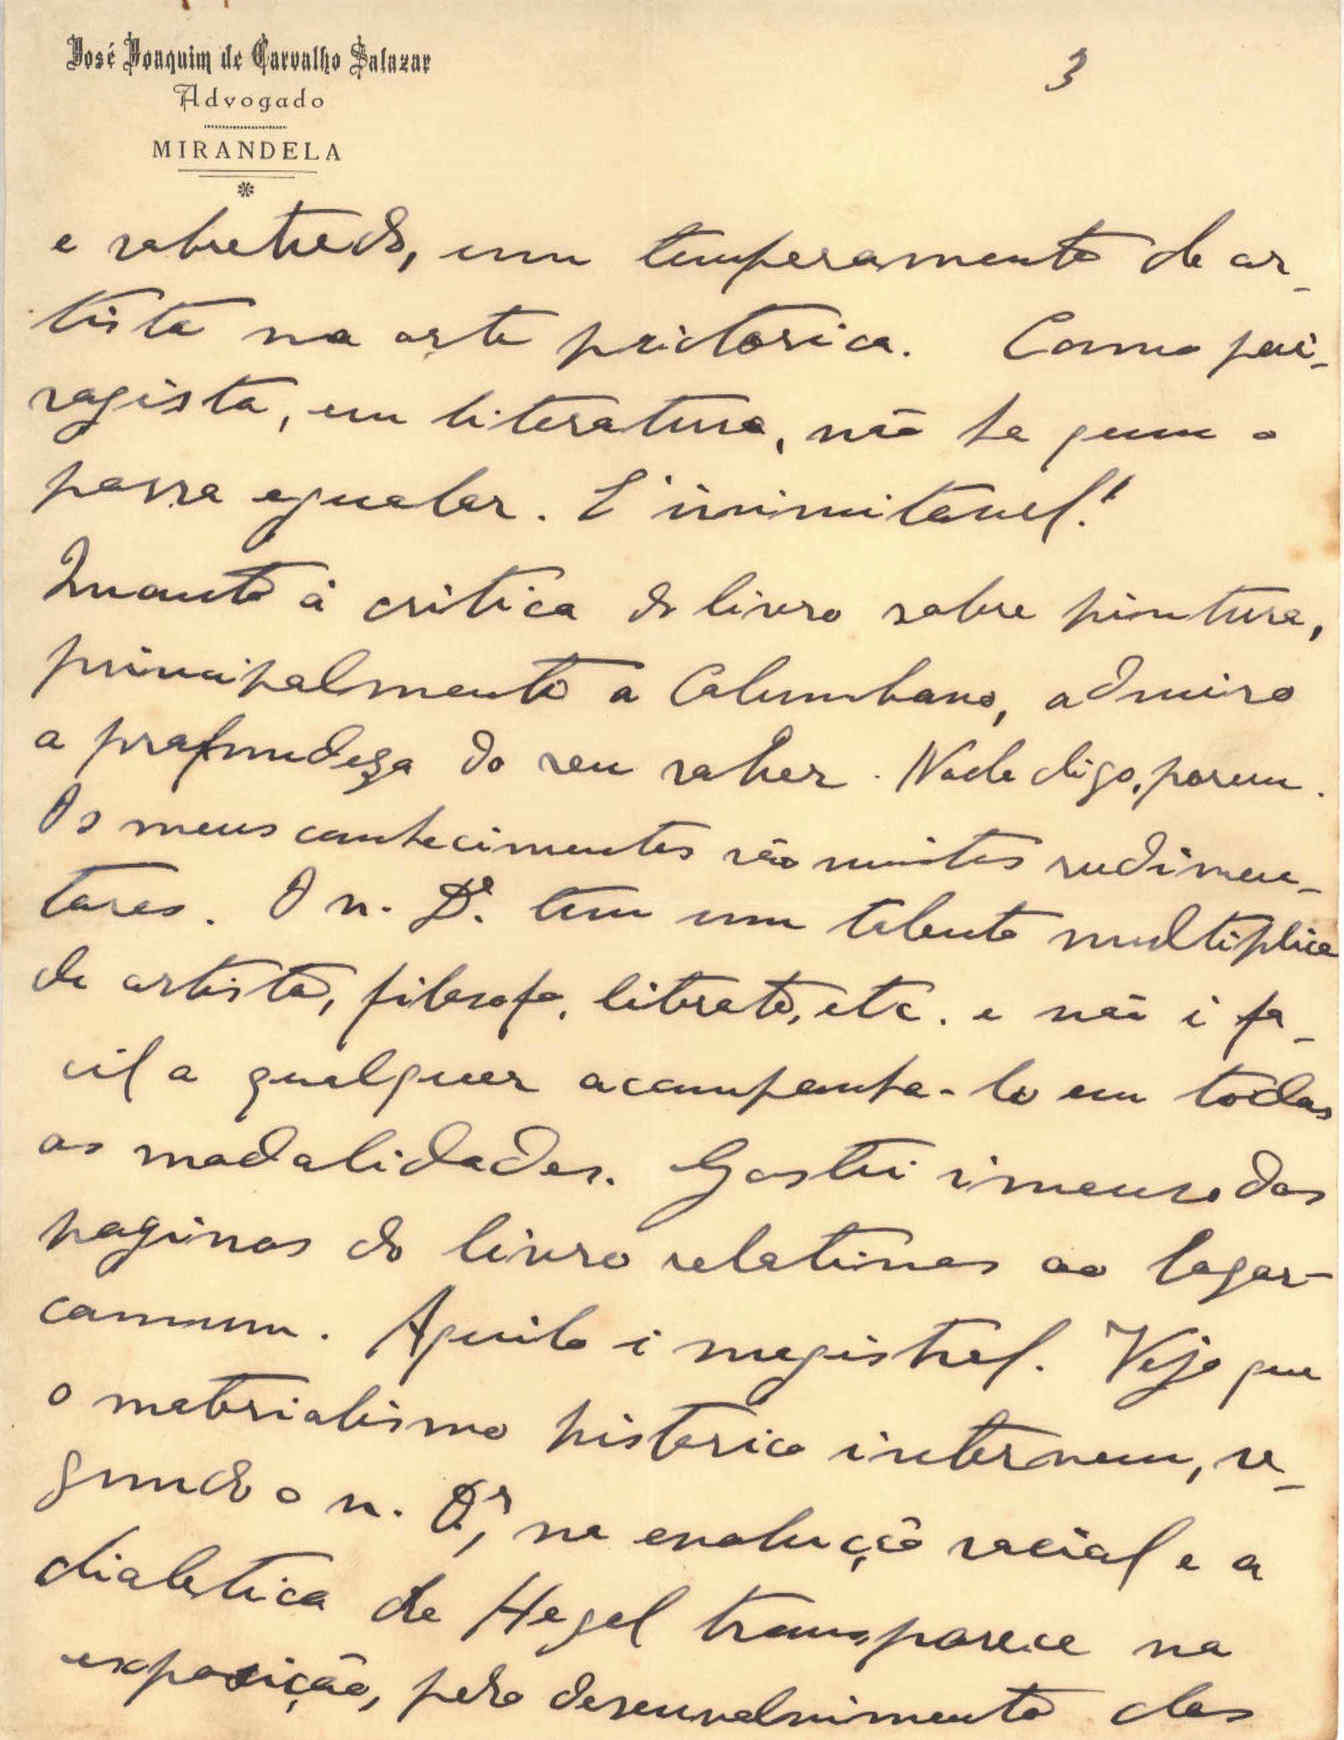 José Joaquim de Carvalho Salazar
Advogado
MIRANDELA
3
e sobretudo, um temperamento de ar-
tista na arte pictorica. Como pai-
sagista, em literatura, não ha quem o
possa egualar. É inimitavel!
Quanto á critica do livro sobre pintura,
principalmente a Columbano, admiro
a profundeza do seu saber. Nada digo, porem.
Os meus conhecimentos são muitos rudimen-
tares. O v. Dr. tem um talento multiplice
de artista, filosofo, literato, etc. e não é fa-
cil a qualquer acompanha-lo em todas
as modalidades. Gostei imenso das
paginas do livro relativas ao logar-
comum. Aquilo é magistral. Vejo que
o materialismo historico intervem, se-
gundo o v. Dr, na evolução social e a
dialetica de Hegel transparece na
exposição, pelo desenvolvimento das